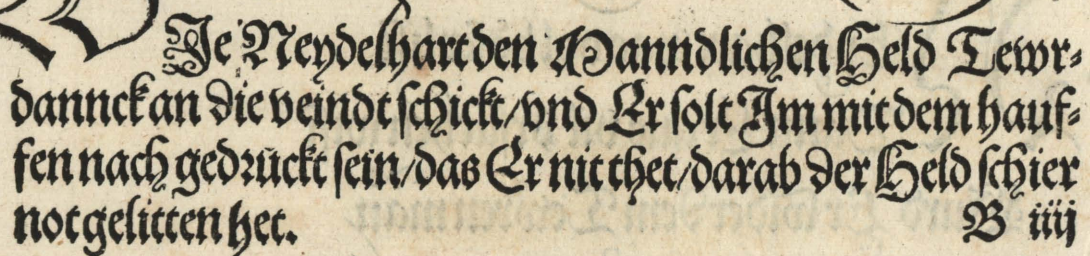 WJe Neydelhart den Manndlichen Held Tewr-
dannck an die veindt schickt/vnd Er solt Jm mit dem hauf-
fen nach gedruckt sein/das Er nit thet/darab der Held schier
not gelitten het. B iiij